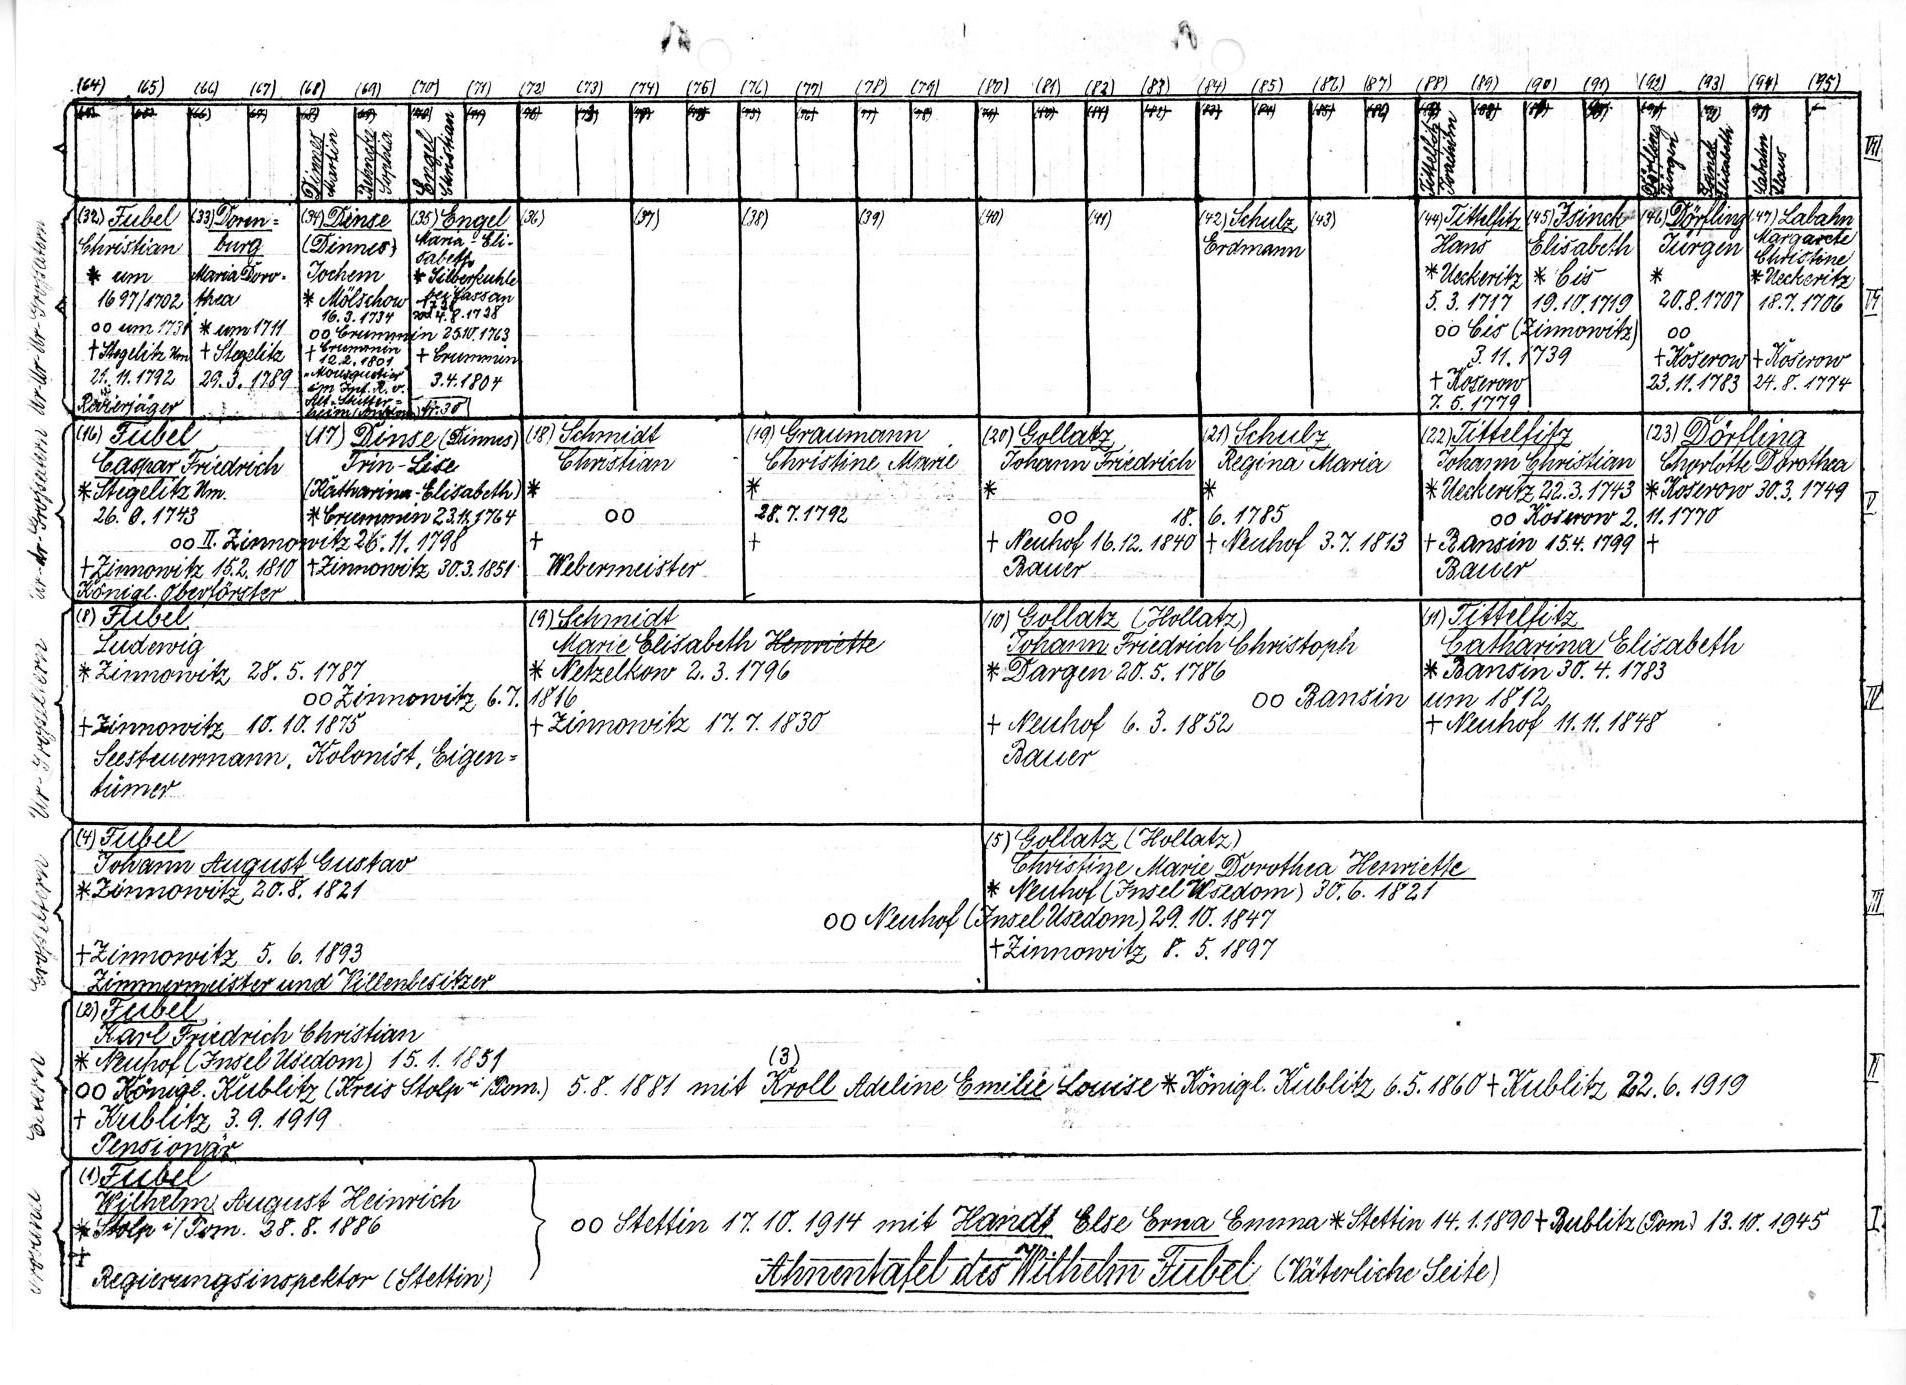 (64) (65) (66) (67) (68) (69) (70) (71) (72) (73) (74) (75) (76) (77) (78) (79) (80) (81) (82) (83) (84) (85) (86) (87) (88) (89) (90) (91) (92) (93) (94) (95)
Dinnes
Martin
Behncke
Sophia
Engel
Christian
Tittelfitz
Joachim
Dörfling
Jürgen
Zainck
Elisabeth
Labahn
Claus
VII
(32) Fubel
Christian
* um
1697/1702
oo um 1731
† Stegelitz Um
21.11.1792
Revierjäger
(33) Doren=
burg
Maria Doro-
thea
* um 1711
† Stegelitz
29.3.1789
(34) Dinse
(Dinnes)
Jochem
* Mölschow
16.3.1734
oo Crummin 25.10.1763
† Crummin
12.2.1801
"Mousquetier"
im Inf. R. v.
Alt-Stutter=
heim
(35) Engel
Maria-Eli-
sabeth
* Silberkuhle
bei Lassan
4.8.1738
† Crummin
3.4.1804
Nr. 30
(36)
(37)
(38)
(39)
(40)
(41)
(42) Schulz
Erdmann
(43)
(44) Tittelfitz
Hans
* Ueckeritz
5.3.1717
oo Cis (Zinnowitz)
3.11.1739
† Koserow
7.5.1779
(45) Isinck
Elisabeth
* Cis
19.10.1719
(46) Dörfling
Jürgen
*
20.8.1707
oo
† Koserow
23.11.1783
(47) Labahn
Margarete
Christine
* Ueckeritz
18.7.1706
† Koserow
24.8.1774
VI
Ur-Ur-Ur-Grosseltern
(16) Fubel
Caspar Friedrich
* Stegelitz Um.
26.8.1743
oo II. Zinnowitz 26.11.1798
† Zinnowitz 15.2.1810
Königl. Oberförster
(17) Dinse (Dinnes)
Trin-Lise
(Katharina-Elisabeth)
* Crummin 23.11.1764
† Zinnowitz 30.3.1851
(18) Schmidt
Christian
*
oo 28.7.1792
†
Webermeister
(19) Graumann
Christine Marie
*
†
(20) Gollatz
Johann Friedrich
*
oo 18.6.1785
† Neuhof 16.12.1840
Bauer
(21) Schulz
Regina Maria
*
† Neuhof 3.7.1813
(22) Tittelfitz
Johann Christian
* Ueckeritz 22.3.1743
oo Koserow 2.11.1770
† Bansin 15.4.1799
Bauer
(23) Dörfling
Charlotte Dorothea
* Koserow 30.3.1749
†
V
(8) Fubel
Ludewig
* Zinnowitz 28.5.1787
oo Zinnowitz 6.7.1816
† Zinnowitz 10.10.1875
Seesteuermann, Kolonist, Eigen=
tümer
(9) Schmidt
Marie Elisabeth Henriette
* Netzelkow 2.3.1796
† Zinnowitz 17.7.1830
(10) Gollatz (Hollatz)
Johann Friedrich Christoph
* Dargen 20.5.1786
oo Bansin um 1812
† Neuhof 6.3.1852
Bauer
(11) Tittelfitz
Catharina Elisabeth
* Bansin 30.4.1783
† Neuhof 11.11.1848
IV
Ur-Grosseltern
(4) Fubel
Johann August Gustav
* Zinnowitz 20.8.1821
oo Neuhof (Insel Usedom) 29.10.1847
† Zinnowitz 5.6.1893
Zimmermeister und Villenbesitzer
(5) Gollatz (Hollatz)
Christine Marie Dorothea Henriette
* Neuhof (Insel Usedom) 30.6.1821
† Zinnowitz 8.5.1897
III
Grosseltern
(2) Fubel
Karl Friedrich Christian
* Neuhof (Insel Usedom) 15.1.1851
(3)
oo Königl. Kublitz (Kreis Stolp i/Pom.) 5.8.1881 mit Kroll Adeline Emilie Louise * Königl. Kublitz 6.5.1860 † Kublitz 22.6.1919
† Kublitz 3.9.1919
Pensionär
II
Eltern
(1) Fubel
Wilhelm August Heinrich
* Stolp i/Pom. 28.8.1886
†
Regierungsinspektor (Stettin)
oo Stettin 17.10.1914 mit Handt Else Erna Emma * Stettin 14.1.1890 † Bublitz (Pom.) 13.10.1945
Ahnentafel des Wilhelm Fubel (Väterliche Seite)
I